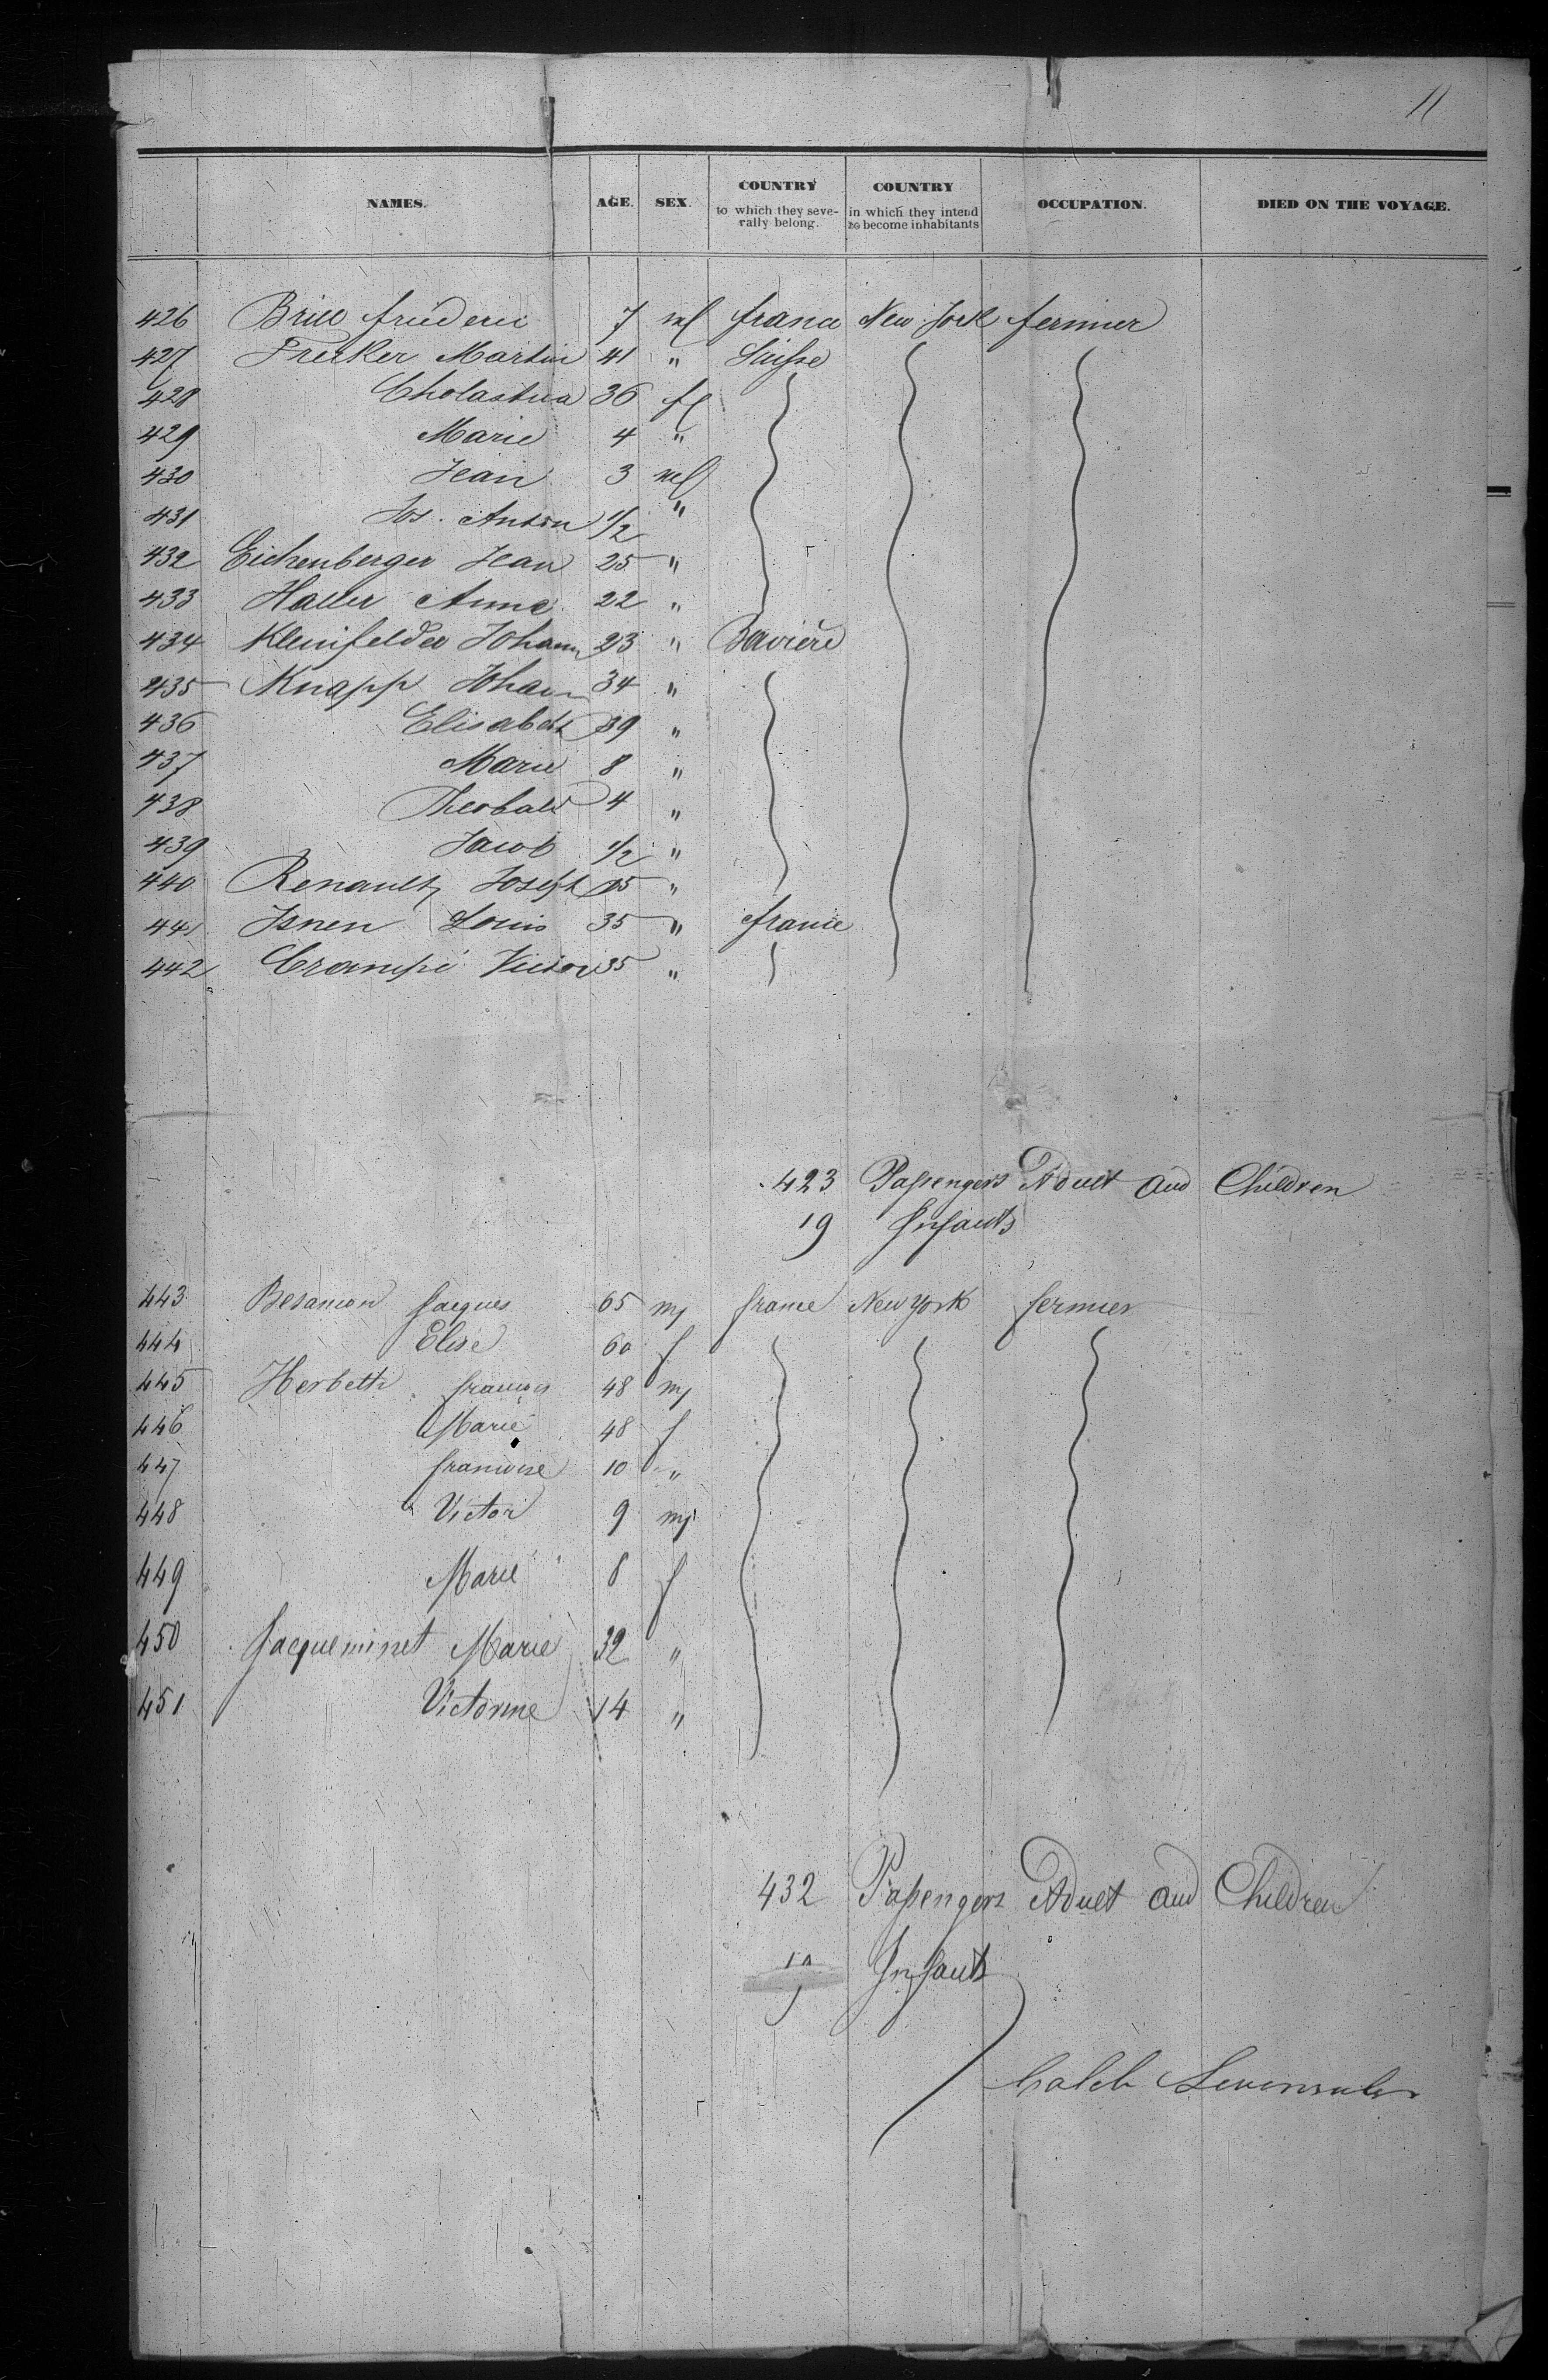 11
NAMES. AGE. SEX. COUNTRY to which they severally belong. COUNTRY in which they intend to become inhabitants OCCUPATION. DIED ON THE VOYAGE.
426 Brill frederic 7 ml france New York fermier
427 Fricker Martin 41 " Suisse
428 Cholastica 36 fl
429 Marie 4 "
430 Jean 3 ml
431 Jos. Anton 1/2 "
432 Eichenberger Jean 25 "
433 Haller Anna 22 "
434 Kleinfelder Johann 23 " Baviere
435 Knapp Johann 34 "
436 Elisabeth 39 "
437 Marie 8 "
438 Theobald 4 "
439 Jacob 1/2 "
440 Renault Joseph "
441 Isnen Louis 35 " france
442 Crampé Victor 35 "
423 Passengers Adult and Children
19 Infants
443 Besancon Jacques 65 m france New York fermier
444 Elise 60 f
445 Herbeth francois 48 m
446 Marie 48 f
447 francoise 10 "
448 Victor 9 m
449 Marie 8 f
450 Jacqueminet Marie 32 "
451 Victorine 14 "
432 Passengers Adult and Children
Infants
Caleb